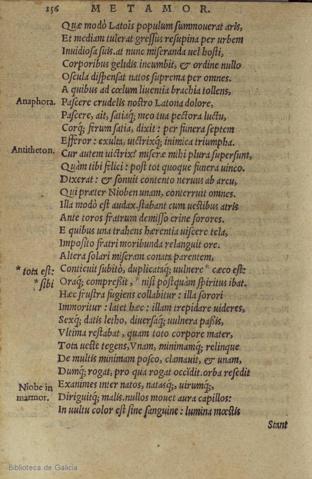 156 METAMOR.
Quæ modò Latoïs populum summouerat aris,
Et mediam tulerat gressus resupina per urbem
Inuidiosa suis. at nunc miseranda uel hosti,
Corporibus gelidis incumbit, & ordine nullo
Oscula dispensat natos suprema per omnes.
A quibus ad cœlum liuentia brachia tollens,
Anaphora. Pascere crudelis nostro Latona dolore,
Pascere, ait, satiaq́; meo tua pectora luctu,
Corq́; ferum satia, dixit: per funera septem
Efferor: exulta, uictrixq́; inimica triumpha.
Antitheton. Cur autem uictrix? miseræ mihi plura supersunt,
Quàm tibi felici: post tot quoque funera uinco.
Dixerat: & sonuit contento neruus ab arcu,
Qui præter Nioben unam, conterruit omnes.
Illa modò est audax. stabant cum uestibus atris
Ante toros fratrum demisso crine sorores.
E quibus una trahens hærentia uiscere tela,
Imposito fratri moribunda relanguit ore.
Altera solari miseram conata parentem,
* tota est: Conticuit subitò, duplicataq́; uulnere * cæco est:
* sibi Oraq́; compressit, * nisi postquàm spiritus ibat.
Hæc frustra fugiens collabitur: illa sorori
Immoritur: latet hæc: illam trepidare uideres,
Sexq́; datis letho, diuersaq́; uulnera passis,
Vltima restabat, quam toto corpore mater,
Tota ueste tegens, Vnam, minimamq́; relinque
De multis minimam posco, clamauit, & unam,
Dumq́; rogat, pro qua rogat occidit. orba resedit
Niobe in Exanimes inter natos, natasq́;, uirumq́;,
marmor. Diriguitq́; malis. nullos mouet aura capillos:
In uultu color est sine sanguine: lumina mœstis
Stant
Biblioteca de Galicia